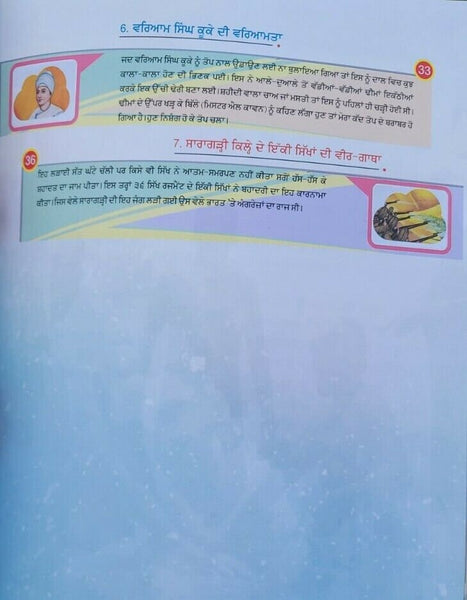 6. ਵਰਿਆਮ ਸਿੰਘ ਕੂਕੇ ਦੀ ਵਰਿਆਮਤਾ
33
ਜਦ ਵਰਿਆਮ ਸਿੰਘ ਕੂਕੇ ਨੂੰ ਤੋਪ ਨਾਲ ਉਡਾਉਣ ਲਈ ਨਾ ਬੁਲਾਇਆ ਗਿਆ ਤਾਂ ਇਸ ਨੂੰ ਦਾਲ ਵਿਚ ਕੁਝ
ਕਾਲਾ-ਕਾਲਾ ਹੋਣ ਦੀ ਭਿਣਕ ਪਈ। ਇਸ ਨੇ ਆਲੇ-ਦੁਆਲੇ ਤੋਂ ਵੱਡੀਆਂ-ਵੱਡੀਆਂ ਢੀਮਾਂ ਇਕੱਠੀਆਂ
ਕਰਕੇ ਇਕ ਉੱਚੀ ਢੇਰੀ ਬਣਾ ਲਈ। ਸ਼ਹੀਦੀ ਵਾਲਾ ਚਾਅ ਜਾਂ ਮਸਤੀ ਤਾਂ ਇਸ ਨੂੰ ਪਹਿਲਾਂ ਹੀ ਚੜ੍ਹੀ ਹੋਈ ਸੀ।
ਢੀਮਾਂ ਦੇ ਉੱਪਰ ਖੜ੍ਹ ਕੇ ਬਿੱਲੇ (ਮਿਸਟਰ ਐਲ ਕਾਵਨ) ਨੂੰ ਕਹਿਣ ਲੱਗਾ ਹੁਣ ਤਾਂ ਮੇਰਾ ਕੱਦ ਤੋਪ ਦੇ ਬਰਾਬਰ ਹੋ
ਗਿਆ ਹੈ। ਹੁਣ ਨਿਸ਼ੰਗ ਹੋ ਕੇ ਤੋਪ ਚਲਾ।
7. ਸਾਰਾਗੜ੍ਹੀ ਕਿਲ੍ਹੇ ਦੇ ਇੱਕੀ ਸਿੱਖਾਂ ਦੀ ਵੀਰ-ਗਾਥਾ
36
ਇਹ ਲੜਾਈ ਸੱਤ ਘੰਟੇ ਚੱਲੀ ਪਰ ਕਿਸੇ ਵੀ ਸਿੱਖ ਨੇ ਆਤਮ-ਸਮਰਪਣ ਨਹੀਂ ਕੀਤਾ ਸਗੋਂ ਹੱਸ-ਹੱਸ ਕੇ
ਸ਼ਹਾਦਤ ਦਾ ਜਾਮ ਪੀਤਾ। ਇਸ ਤਰ੍ਹਾਂ ੩੬ ਸਿੱਖ ਰਜਮੈਂਟ ਦੇ ਇੱਕੀ ਸਿੱਖਾਂ ਨੇ ਬਹਾਦਰੀ ਦਾ ਇਹ ਕਾਰਨਾਮਾ
ਕੀਤਾ।ਜਿਸ ਵੇਲੇ ਸਾਰਾਗੜੀ ਦੀ ਇਹ ਜੰਗ ਲੜੀ ਗਈ ਉਸ ਵੇਲੇ ਭਾਰਤ 'ਤੇ ਅੰਗਰੇਜ਼ਾਂ ਦਾ ਰਾਜ ਸੀ।